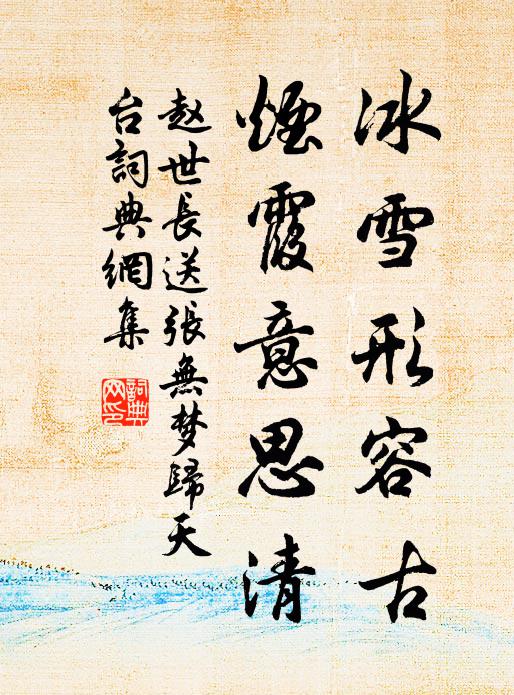 冰雪形容古
煙霞意思清
赵世長送張無梦歸天
台詞典網集
詞典
网印